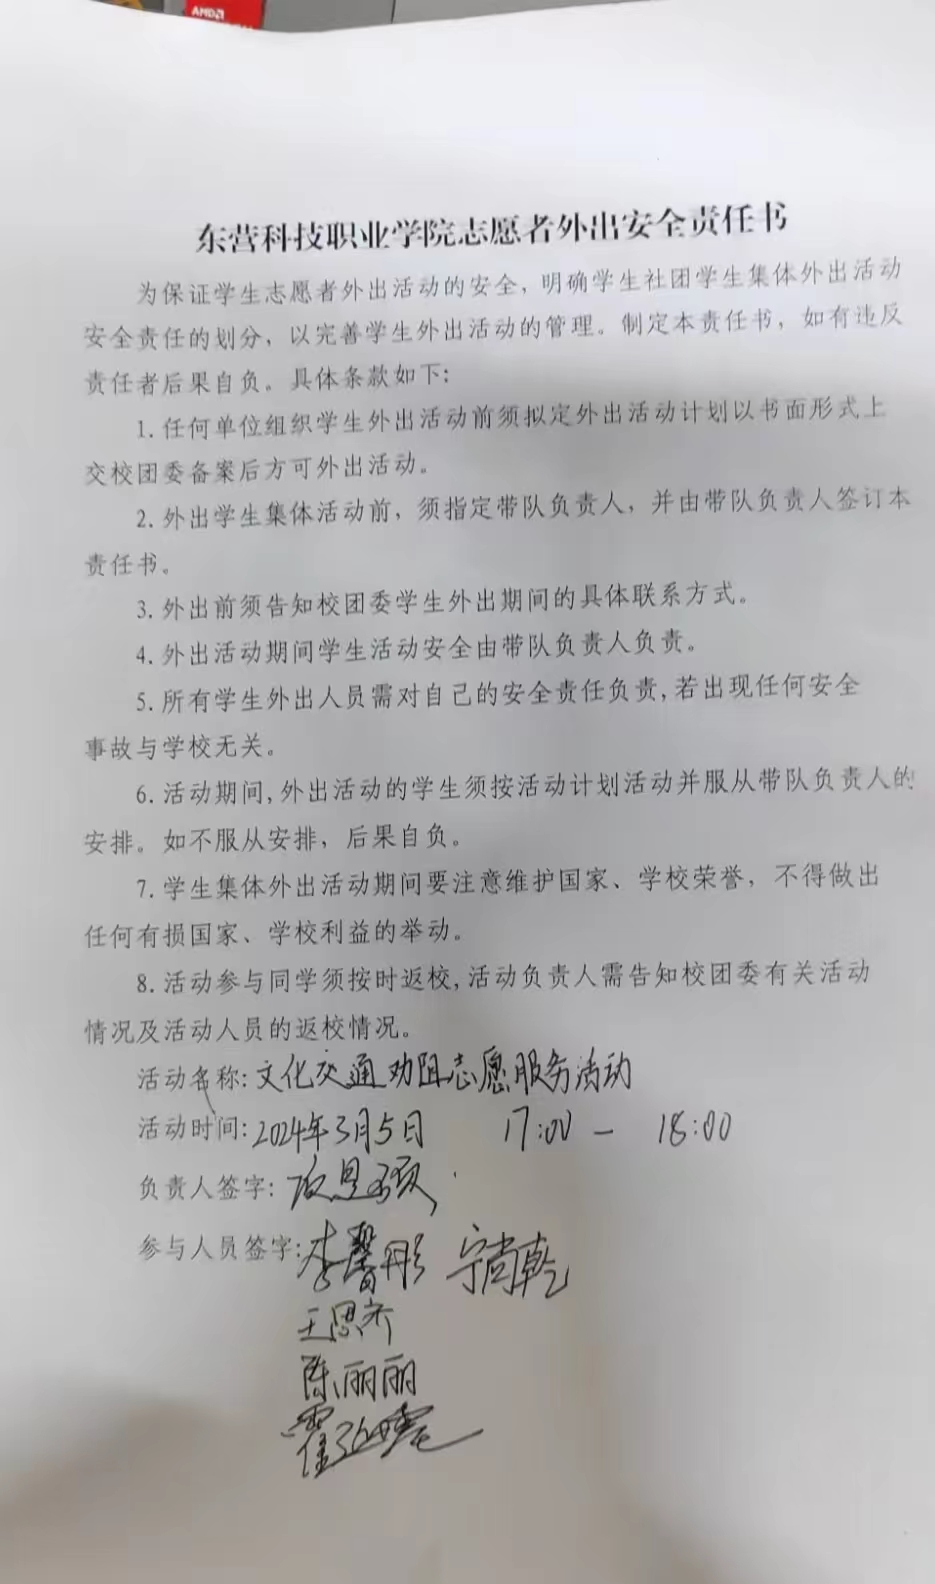 AMD
东营科技职业学院志愿者外出安全责任书
为保证学生志愿者外出活动的安全，明确学生社团学生集体外出活动
安全责任的划分，以完善学生外出活动的管理。制定本责任书，如有违反
责任者后果自负。具体条款如下：
1.任何单位组织学生外出活动前须拟定外出活动计划以书面形式上
交校团委备案后方可外出活动。
2.外出学生集体活动前，须指定带队负责人，并由带队负责人签订本
责任书。
3.外出前须告知校团委学生外出期间的具体联系方式。
4.外出活动期间学生活动安全由带队负责人负责。
5.所有学生外出人员需对自己的安全责任负责,若出现任何安全
事故与学校无关。
6.活动期间,外出活动的学生须按活动计划活动并服从带队负责人的
安排。如不服从安排，后果自负。
7.学生集体外出活动期间要注意维护国家、学校荣誉，不得做出
任何有损国家、学校利益的举动。
8.活动参与同学须按时返校,活动负责人需告知校团委有关活动
情况及活动人员的返校情况。
活动名称:文化交通劝阻志愿服务活动
活动时间:2024年3月5日 17:00 — 18:00
负责人签字:
参与人员签字:李馨彤 宁尚乾
王思齐
陈丽丽